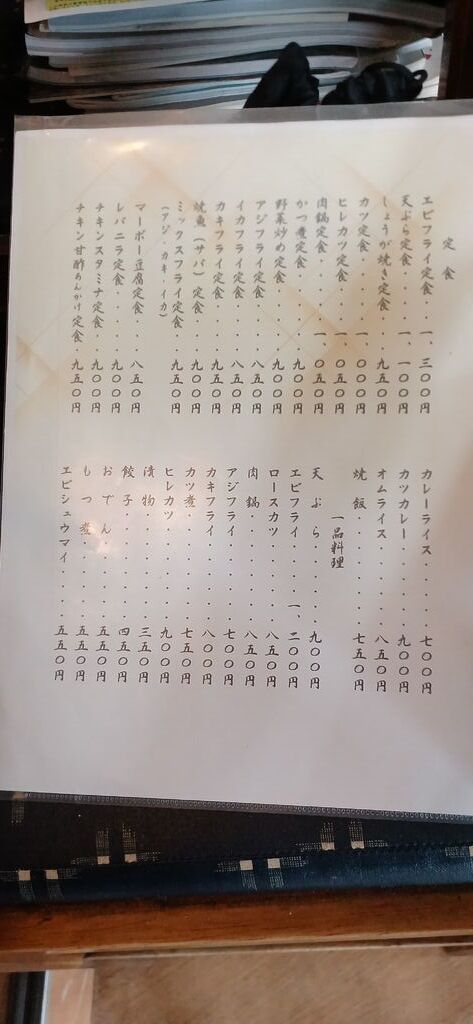 定食
エビフライ定食・一、三〇〇円
天ぷら定食・・・一、一〇〇円
しょうが焼き定食・・九五〇円
カツ定食・・・・一、〇〇〇円
ヒレカツ定食・・一、〇五〇円
肉鍋定食・・・・一、〇五〇円
かつ煮定食・・・・・九〇〇円
野菜炒め定食・・・・九〇〇円
アジフライ定食・・・八五〇円
イカフライ定食・・・八五〇円
カキフライ定食・・・九五〇円
焼魚(サバ)定食・・九〇〇円
ミックスフライ定食・九五〇円
(アジ・カキ・イカ)
マーボー豆腐定食・・・八五〇円
レバニラ定食・・・・九〇〇円
チキンスタミナ定食・・九〇〇円
チキン甘酢あんかけ定食・九五〇円
カレーライス・・・・・七〇〇円
カツカレー・・・・・・九〇〇円
オムライス・・・・・・八五〇円
焼飯・・・・・・・・・七五〇円
一品料理
天ぷら・・・・・・・・九〇〇円
エビフライ・・・・一、二〇〇円
ロースカツ・・・・・・八五〇円
肉鍋・・・・・・・・・八五〇円
アジフライ・・・・・・七〇〇円
カキフライ・・・・・・八〇〇円
カツ煮・・・・・・・・七五〇円
ヒレカツ・・・・・・・九〇〇円
漬物・・・・・・・・・三五〇円
餃子・・・・・・・・・四五〇円
おでん・・・・・・・・五五〇円
もつ煮・・・・・・・・五五〇円
エビシュウマイ・・・・五五〇円